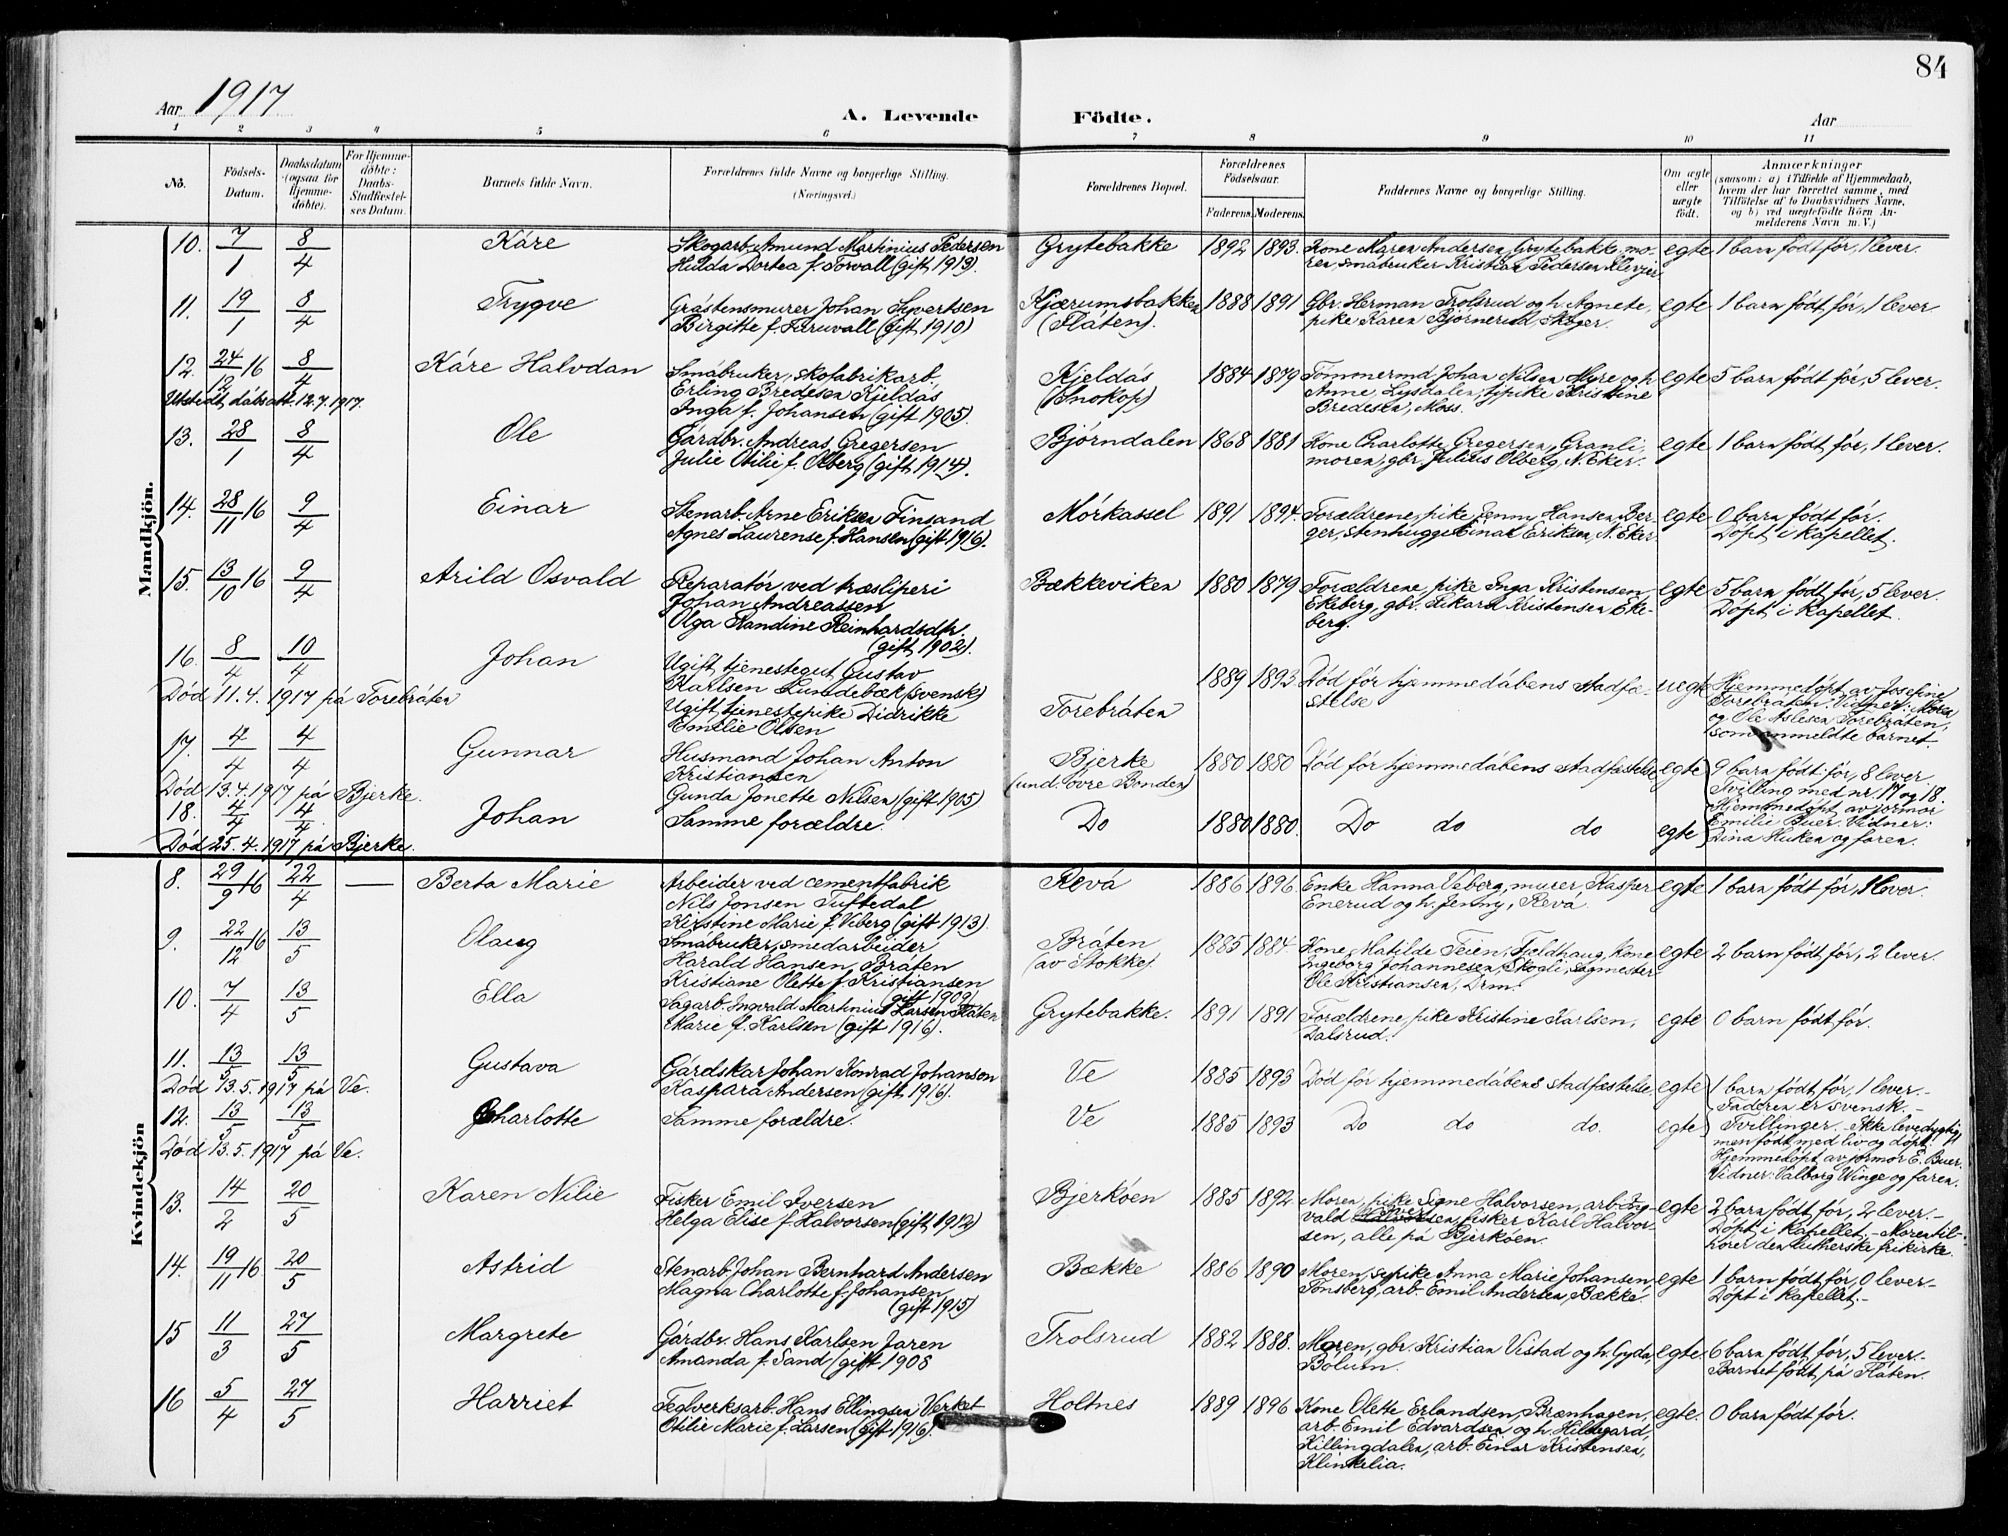 84
Aar 1917
A. Levende Födte.
Aar
1 2 3 4 5 6 7 8 9 10 11
No.
Födsels-Datum.
Daabsdatum (ogsaa for Hjemmedöbte).
For Hjemmedöbte: Daabs-Stadfæstelses Datum.
Barnets fulde Navn.
Forældrenes fulde Navne og borgerlige Stilling. (Næringsvei.)
Forældrenes Bopæl.
Forældrenes Födselsaar. Faderens. Moderens.
Faddernes Navne og borgerlige Stilling.
Om ægte eller uægte födt.
Anmærkninger (saasom: a) i Tilfælde af Hjemmedaab, hvem der har forrettet samme, med Tilföielse af to Daabsvidners Navne, og b) ved uægtefödte Börn Anmelderens Navn m. V.)
Mandkjön.
10. 7/1 8/4 Káre
Skogarb. Amund Martinius Pedersen
Hulda Dortea f. Torvall (gift 1913).
Grytebakke 1892 1893.
Kone Maren Andersen, Grytebakke, mo-
ren, småbruker Kristian Pedersen Klevjer
egte 1 barn født før, 1 lever.
11. 19/1 8/4 Trygve
Gråstensmurer Johan Syvertsen
Birgitte f. Kruvall (gift 1910)
Kjærumsbakken
(Flåten).
1888 1891
Gbr. Herman Trolsrud og h. Agnete,
pike Karen Bjørnerud, Skoger.
egte 1 barn født før, 1 lever
12. 24/12 16 8/4 Káre Halvdan
Utstedt dåbsatt. 12.7.1917.
Småbruker, skofabrikarb.
Erling Bredesen Kjeldås
Inga f. Johansen (gift 1905).
Kjeldås
(Knokop)
1884 1879
Tømmermd. Johan Nilsen Myre og h.
Anne, Lysdalen, tjpike Kristine
Bredesen, Moss.
egte 5 barn født før, 5 lever.
13. 28/1 8/4 Ole
Gårdbr. Andreas Gregersen
Julie Otilie f. Olberg (gift 1914).
Bjørndalen 1868 1881
Kone Charlotte Gregersen, Granli,
moren, gbr. Julius Olberg, N. Eker.
egte 1 barn født før, 1 lever.
14. 28/11 16 9/4 Einar
Stenarb. Arne Eriksen Finsand
Agnes Laurense f. Hansen (gift 1916).
Mørkassel 1891 1894.
Forældrene, pike Jenny Hansen Ber-
ger, stenhugge Einar Eriksen, N. Eker.
egte 0 barn født før.
Døpt i kapellet.
15. 13/10 16 9/4 Arild Osvald
Reparatør ved træsliperi
Johan Andreassen
Olga Randine Reinhardsdtr.
(gift 1902).
Bækkeviken 1880 1879
Forældrene, pike Inga Kristensen,
Ekeberg, gbr. Sikard Kristensen Eke-
berg.
egte 5 barn født før, 5 lever.
Døpt i kapellet.
16. 8/4 10/4 Johan
Død 11.4.1917 på Torebråten
Ugift tjenestegut Gustav
Karlsen Lundebæk (svensk)
Ugift tjenestepike Didrikke
Emilie Olsen
Torebråten
1889 1893
Død før hjemmedåbens stadfæ-
stelse
uegte Hjemmedøpt av Josefine
Torebråten. Vidner: Moren
og Ole Aslesen Torebråten,
som anmeldte barnet.
17. 4/4 4/4 Gunnar
Død 13.4.1917 på Bjerke.
Husmand Johan Anton
Kristiansen
Gunda Jonette Nilsen (gift 1905)
Bjerke
(und. øvre Bonden)
1880 1880
Død før hjemmedåbens stadfæstelse
egte 9 barn født før, 8 lever
Tvilling med nr 17 og 18.
Hjemmedøpt av jormor
Emilie Buer. Vidner:
Dina Huken og faren.
18. 4/4 4/4 Johan
Død 25.4.1917 på Bjerke.
Samme forældre.
Do 1880 1880. Do do do egte
Kvindekjön
8. 29/9 16 22/4 — Berta Marie
Arbeider ved cementfabrik
Nils Jonsen Tuftedal
Kirstine Marie f. Viberg (gift 1913).
Revå 1886 1896.
Enke Hanna Veberg, murer Kasper
Enerud og h. Jenny, Revå.
egte 1 barn født før, 1 lever.
9. 22/12 16 13/5 Olaug
Småbruker, smedarbeider
Harald Hansen Bråten
Kristiane Olette f. Kristiansen
gift 1909)
Bråten
(av Stokke).
1885 1884.
Kone Matilde Teien, Fjeldhaug, kone
Ingeborg Johannesen, Skogli, sagmester
Ole Kristiansen, Drm.
egte 2 barn født før, 2 lever.
10. 7/4 13/5 Ella
Sagarb. Ingvald Martinius Larsen Flåten
Marie f. Karlsen (gift 1916).
Grytebakke. 1891 1891
Forældrene, pike Kristine Karlsen,
Dalsrud.
egte 0 barn født før.
11. 13/5 13/5 Gustava
Død 13.5.1917 på Ve.
Gårdskar Johan Konrad Johanson
Kaspara Andersen (gift 1916).
Ve 1885 1893
Død før hjemmedåbens stadfæstelse
egte 1 barn født før, 1 lever.-
Faderen er svensk.-
Tvillinger. - Ikke levedygtig,
men født med liv og døpt.
Hjemmedøpt av jormor E. Buer.
Vidner: Valborg Winge og faren.
12. 13/5 13/5 Charlotte
Død 13.5.1917 på Ve.
Samme forældre.
Ve 1885 1893 Do do do. egte
13. 14/2 20/5 Karen Nilie
Fisker Emil Iversen
Helga Elise f. Halvorsen (gift 1912)
Bjerkøen 1885 1892
Moren, pike Signe Halvorsen, arb. Ing-
vald Iversen, fisker Karl Halvor-
sen, alle på Bjerkøen.
egte 2 barn født før, 2 lever.-
Døpt i kapellet. - Moren til-
hører den lutherske frikirke.
14. 19/11 16 20/5 Astrid
Stenarb. Johan Bernhard Andersen
Magna Charlotte f. Johansen
(gift 1915)
Bække 1886 1890
Moren, sypike Anna Marie Johansen,
Tønsberg, arb. Emil Andersen, Bække.
egte 1 barn født før, 0 lever-
Døpt i kapellet.-
15 11/3 27/5 Margrete
Gårdbr. Hans Karlsen Jaren
Amanda f. Sand (gift 1908
Trolsrud 1882 1888.
Moren, gbr. Kristian Vistad og h. Gyda,
Bolum.
egte. 6 barn født før, 5 lever.-
Barnet født på Flåten.
16 5/4 27/5 Harriet
Teglverksarb. Hans Ellingsen Verket
Otilie Marie f. Larsen (gift 1916).
Holtnes 1889 1896
Kone Olette Erlandsen, Brænhagen,
arb. Emil Edvardsen og h. Hildegard,
Killingdalen, arb. Einar Kristensen,
Klinkelia.
egte. 0 barn født før.